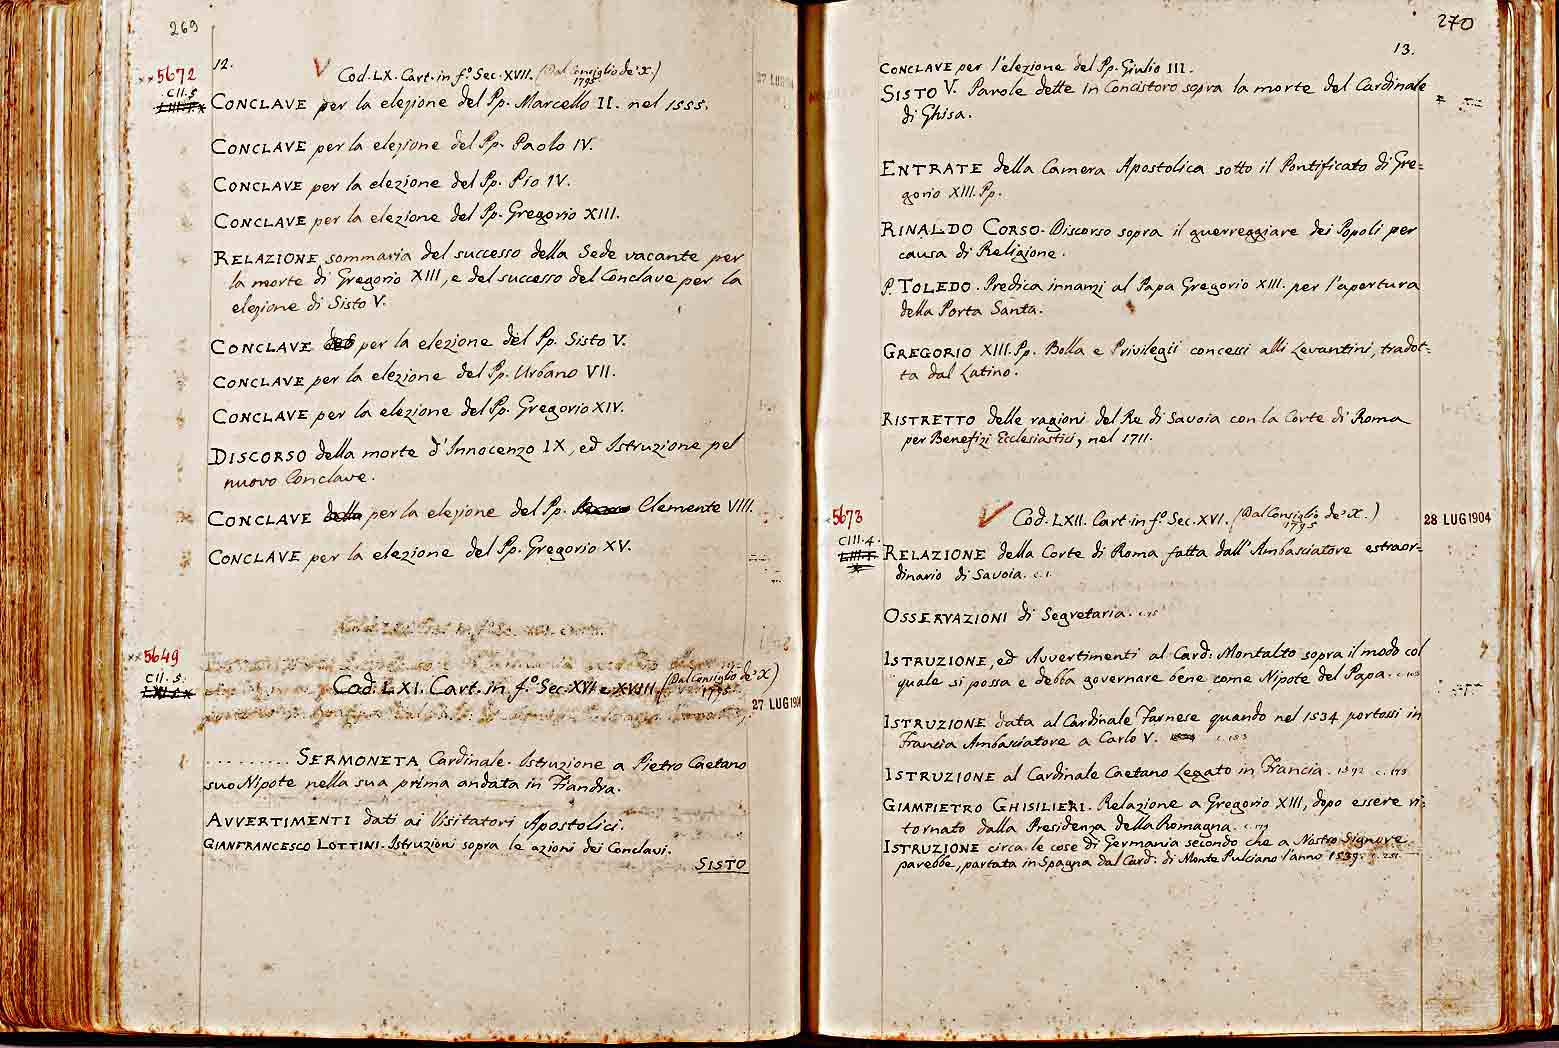 269
12.
5672
CII.5
Cod. LX. Cart. in f.º Sec. XVII. (Dal Consiglio de' X.)
1795
CONCLAVE per la elezione del Pp. Marcello II. nel 1555.
CONCLAVE per la elezione del Pp. Paolo IV.
CONCLAVE per la elezione del Pp. Pio IV.
CONCLAVE per la elezione del Pp. Gregorio XIII.
RELAZIONE sommaria del successo della Sede vacante per
la morte di Gregorio XIII, e del successo del Conclave per la
elezione di Sisto V.
CONCLAVE per la elezione del Pp. Sisto V.
CONCLAVE per la elezione del Pp. Urbano VII.
CONCLAVE per la elezione del Pp. Gregorio XIV.
DISCORSO della morte d'Innocenzo IX, ed Istruzione pel
nuovo Conclave.
CONCLAVE della per la elezione del Pp. Clemente VIII.
CONCLAVE per la elezione del Pp. Gregorio XV.
5649
CII.5.
Cod. LXI. Cart. in f.º Sec. XVI e XVIII. (Dal Consiglio de' X)
1795
27 LUG 1904
.......... SERMONETA Cardinale. Istruzione a Pietro Caetano
suo Nipote nella sua prima andata in Fiandra.
AVVERTIMENTI dati ai Visitatori Apostolici.
GIANFRANCESCO LOTTINI. Istruzioni sopra le azioni dei Conclavi.
SISTO
270
13.
CONCLAVE per l'elezione del Pp. Giulio III.
SISTO V. Parole dette in Concistoro sopra la morte del Cardinale
di Ghisa.
ENTRATE della Camera Apostolica sotto il Pontificato di Gre=
gorio XIII. Pp.
RINALDO CORSO. Discorso sopra il guerreggiare dei Popoli per
causa di Religione.
P. TOLEDO. Predica innanzi al Papa Gregorio XIII. per l'apertura
della Porta Santa.
GREGORIO XIII. Pp. Bolla e Privilegii concessi alli Levantini, tradot=
ta dal Latino.
RISTRETTO delle ragioni del Re di Savoia con la Corte di Roma
per Benefizj Ecclesiastici, nel 1711.
5673
CIII.4.
Cod. LXII. Cart. in f.º Sec. XVI. (Dal Consiglio de' X.)
1795
28 LUG 1904
RELAZIONE della Corte di Roma fatta dall'Ambasciatore estraor=
dinario di Savoia. c.1.
OSSERVAZIONI di Segretaria.
ISTRUZIONE, ed Avvertimenti al Card: Montalto sopra il modo col
quale si possa e debba governare bene come Nipote del Papa.
ISTRUZIONE data al Cardinale Farnese quando nel 1534 portossi in
Francia Ambasciatore a Carlo V.
ISTRUZIONE al Cardinale Caetano Legato in Francia.
GIAMPIETRO GHISILIERI. Relazione a Gregorio XIII, dopo essere ri=
tornato dalla Presidenza della Romagna.
ISTRUZIONE circa le cose di Germania secondo che a Nostro Signore
parebbe, portata in Spagna dal Card: di Monte Pulciano l'anno 1539.